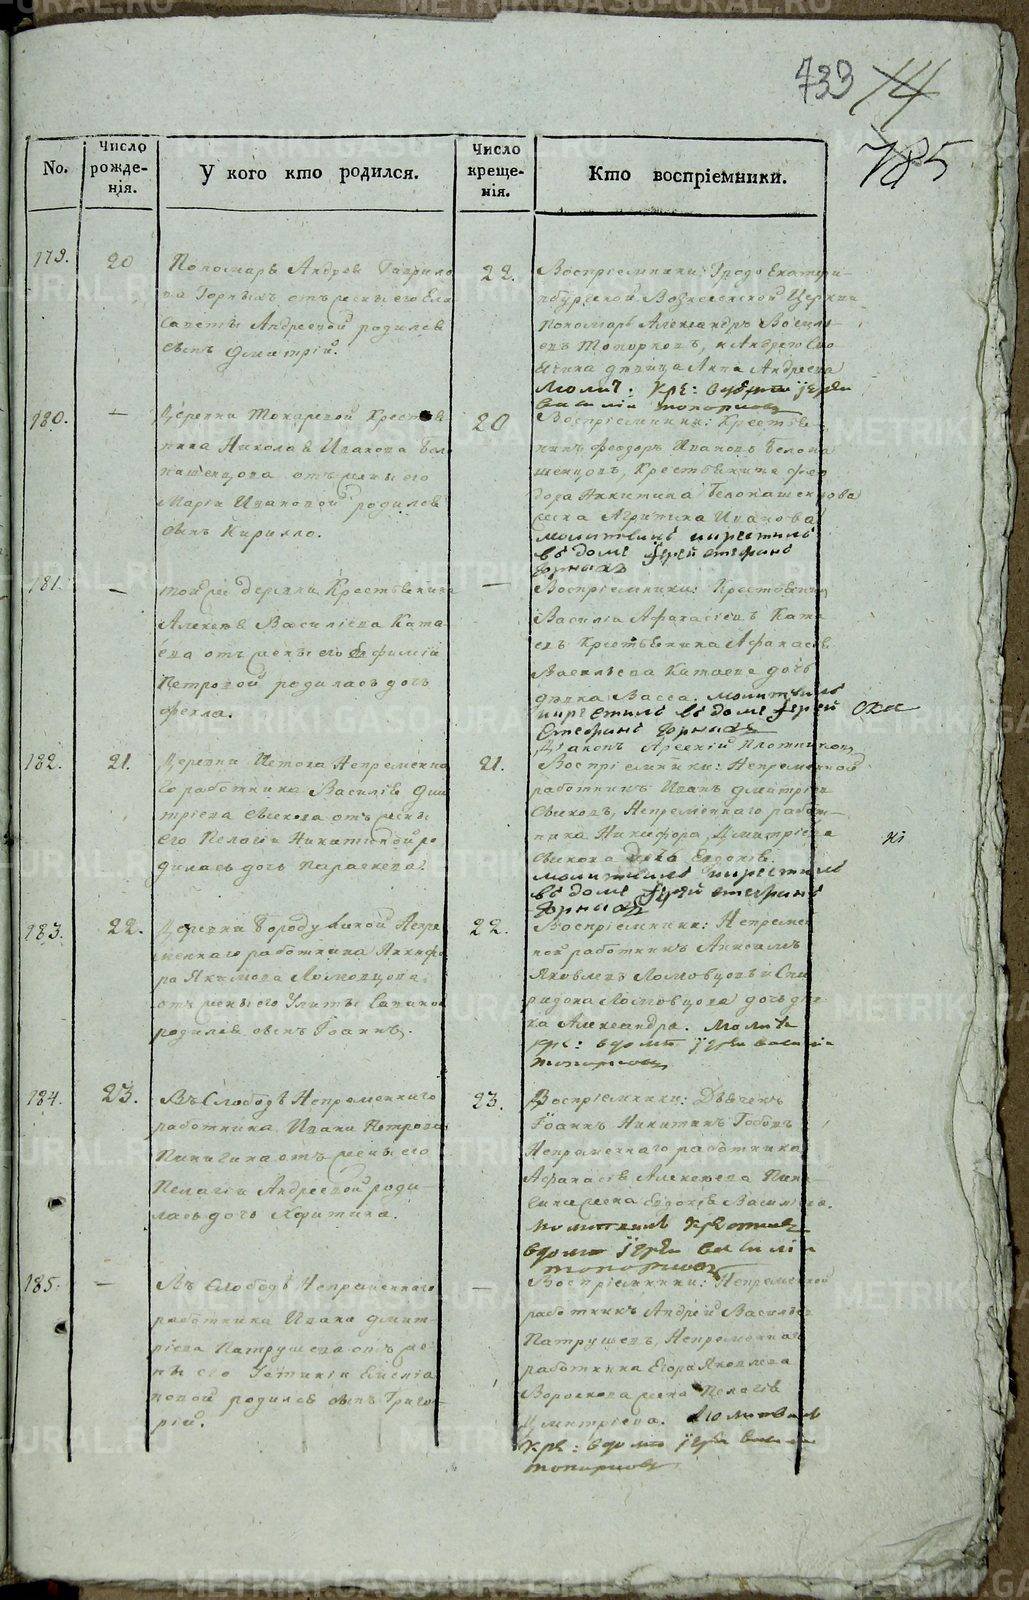 733 14
785
No.
Число рожде-
нія.
У кого кто родился.
Число креще-
нія.
Кто воспріемники.
179.
20
Пономаря Андрея Гаврило
ва Горныхъ отъ жены его Ели
саветы Андреевой родился
сынъ Дмитрій.
22.
Воспріемники: Града Екатери-
нбургской Вознесенской Церкви
пономарь Александръ Василь-
евъ Топорковъ, и Андрея
дѣвица Анна Андреева
Молит: Кре:
Василій Топорковъ
180.
—
Деревни Токаревой Крестья-
нина Николая Иванова Бело
кашенцова отъ жены его
Маріи Ивановой родился
сынъ Кирилло.
20
Воспріемники: Крестья-
нинъ Феодоръ Ивановъ Белока
шенцовъ, Крестьянина Фео
дора Никитина Белокашенцова
жена Агрипина Иванова
молитвилъ и крестилъ
въ доме Іерей Стефанъ
Горныхъ
181.
—
той же деревни Крестьянина
Алексея Василіева Ката-
ева отъ жены его Ефиміи
Петровой родилась дочь
Фекла.
—
Воспріемники: Крестьянинъ
Василій Афанасіевъ Ката-
евъ Крестьянина Афанасія
Васильева Катаева дочь
девка Васса. молитвилъ
и крестилъ въ доме Іерей
Стефанъ Горныхъ
Діаконъ Арсеній Плотниковъ
182.
21.
Деревни Истока Непременна
го работника Василія Дми
тріева Свикова отъ жены
его Пелагіи Никитиной ро
дилась дочь Параскева.
21.
Воспріемники: Непременной
работникъ Иванъ Дмитріевъ
Свиковъ, Непременнаго работ-
ника Никифора Дмитріева
Свикова Евдокія.
молитвилъ и крестилъ
въ доме Іерей Стефанъ
Горныхъ
183.
22.
Деревни Бородулиной Непре
меннаго работника Никифо
ра Якимова Ломовцова
отъ жены его Улиты
родился сынъ Іоаннъ.
22.
Воспріемники: Непремен
ной работникъ Анисимъ
Яковлевъ Ломовцовъ и Спи
ридона Ломовцова дочь дев
ка Александра. Молитв
кре: въ доме іерей Василій
Топорковъ
184.
23.
Въ Слободѣ Непременнаго
работника Ивана Петрова
Пинигина отъ жены его
Пелагіи Андреевой роди-
лась дочь Христина.
23.
Воспріемники:
Іоаннъ Никитинъ
Непременнаго работника
Афанасія Алексеева Пини
гина жена Евдокія Васильева.
Молитвилъ крестилъ
въ доме іерей Василій
Топорковъ
185.
—
Въ Слободѣ Непременнаго
работника Ивана Дмит-
ріева Патрушева отъ же-
ны его
родился сынъ Григо-
рій.
—
Воспріемники: Непременной
работникъ Андрей Васильевъ
Патрушевъ, Непременнаго
работника Егора Яковлева
жена Пелагія
Дмитріева. Молитвилъ
Кре: въ доме іерей Василій
Топорковъ